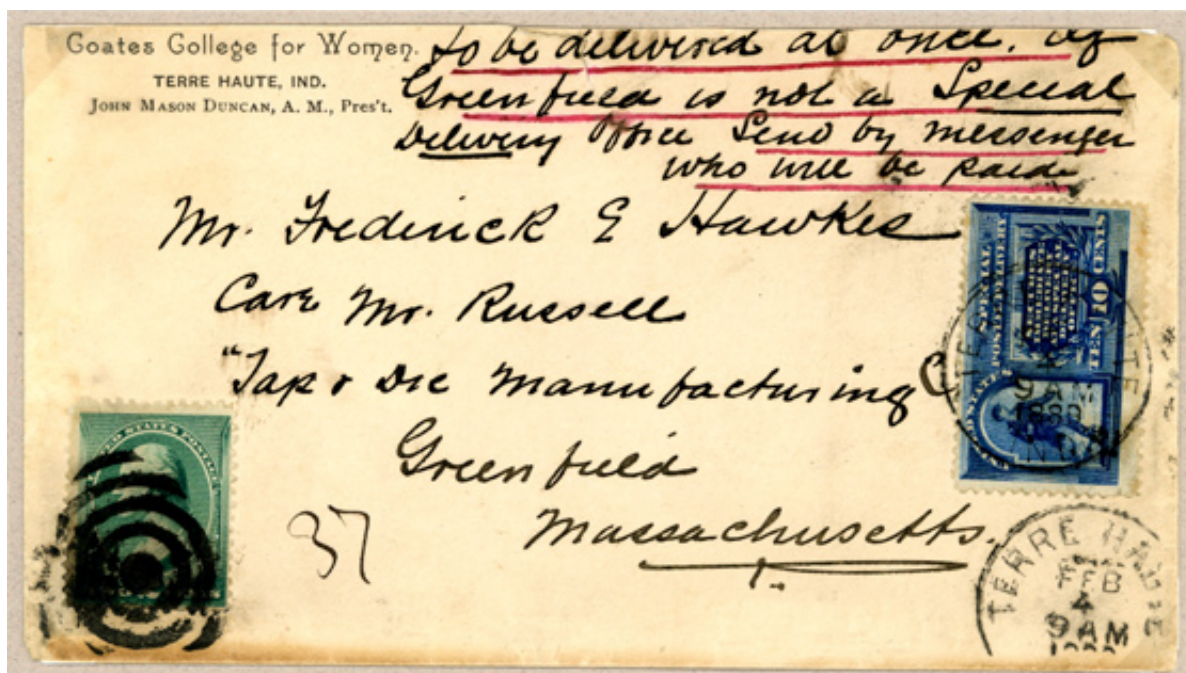 Coates College for Women.
TERRE HAUTE, IND.
JOHN MASON DUNCAN, A. M., Pres't.
To be delivered at once. If
Greenfield is not a Special
Delivery Office Send by messenger
who will be paid
Mr. Frederick E Hawkes
Care Mr. Russell
"Tap & Die Manufacturing C
Greenfield
Massachusetts.
37
UNITED STATES POSTAGE
UNITED STATES
SPECIAL
POSTAL DELIVERY
TEN 10 CENTS
TERRE HAUTE
4
9 AM
IND
TERRE HAUTE
FEB
4
9 AM